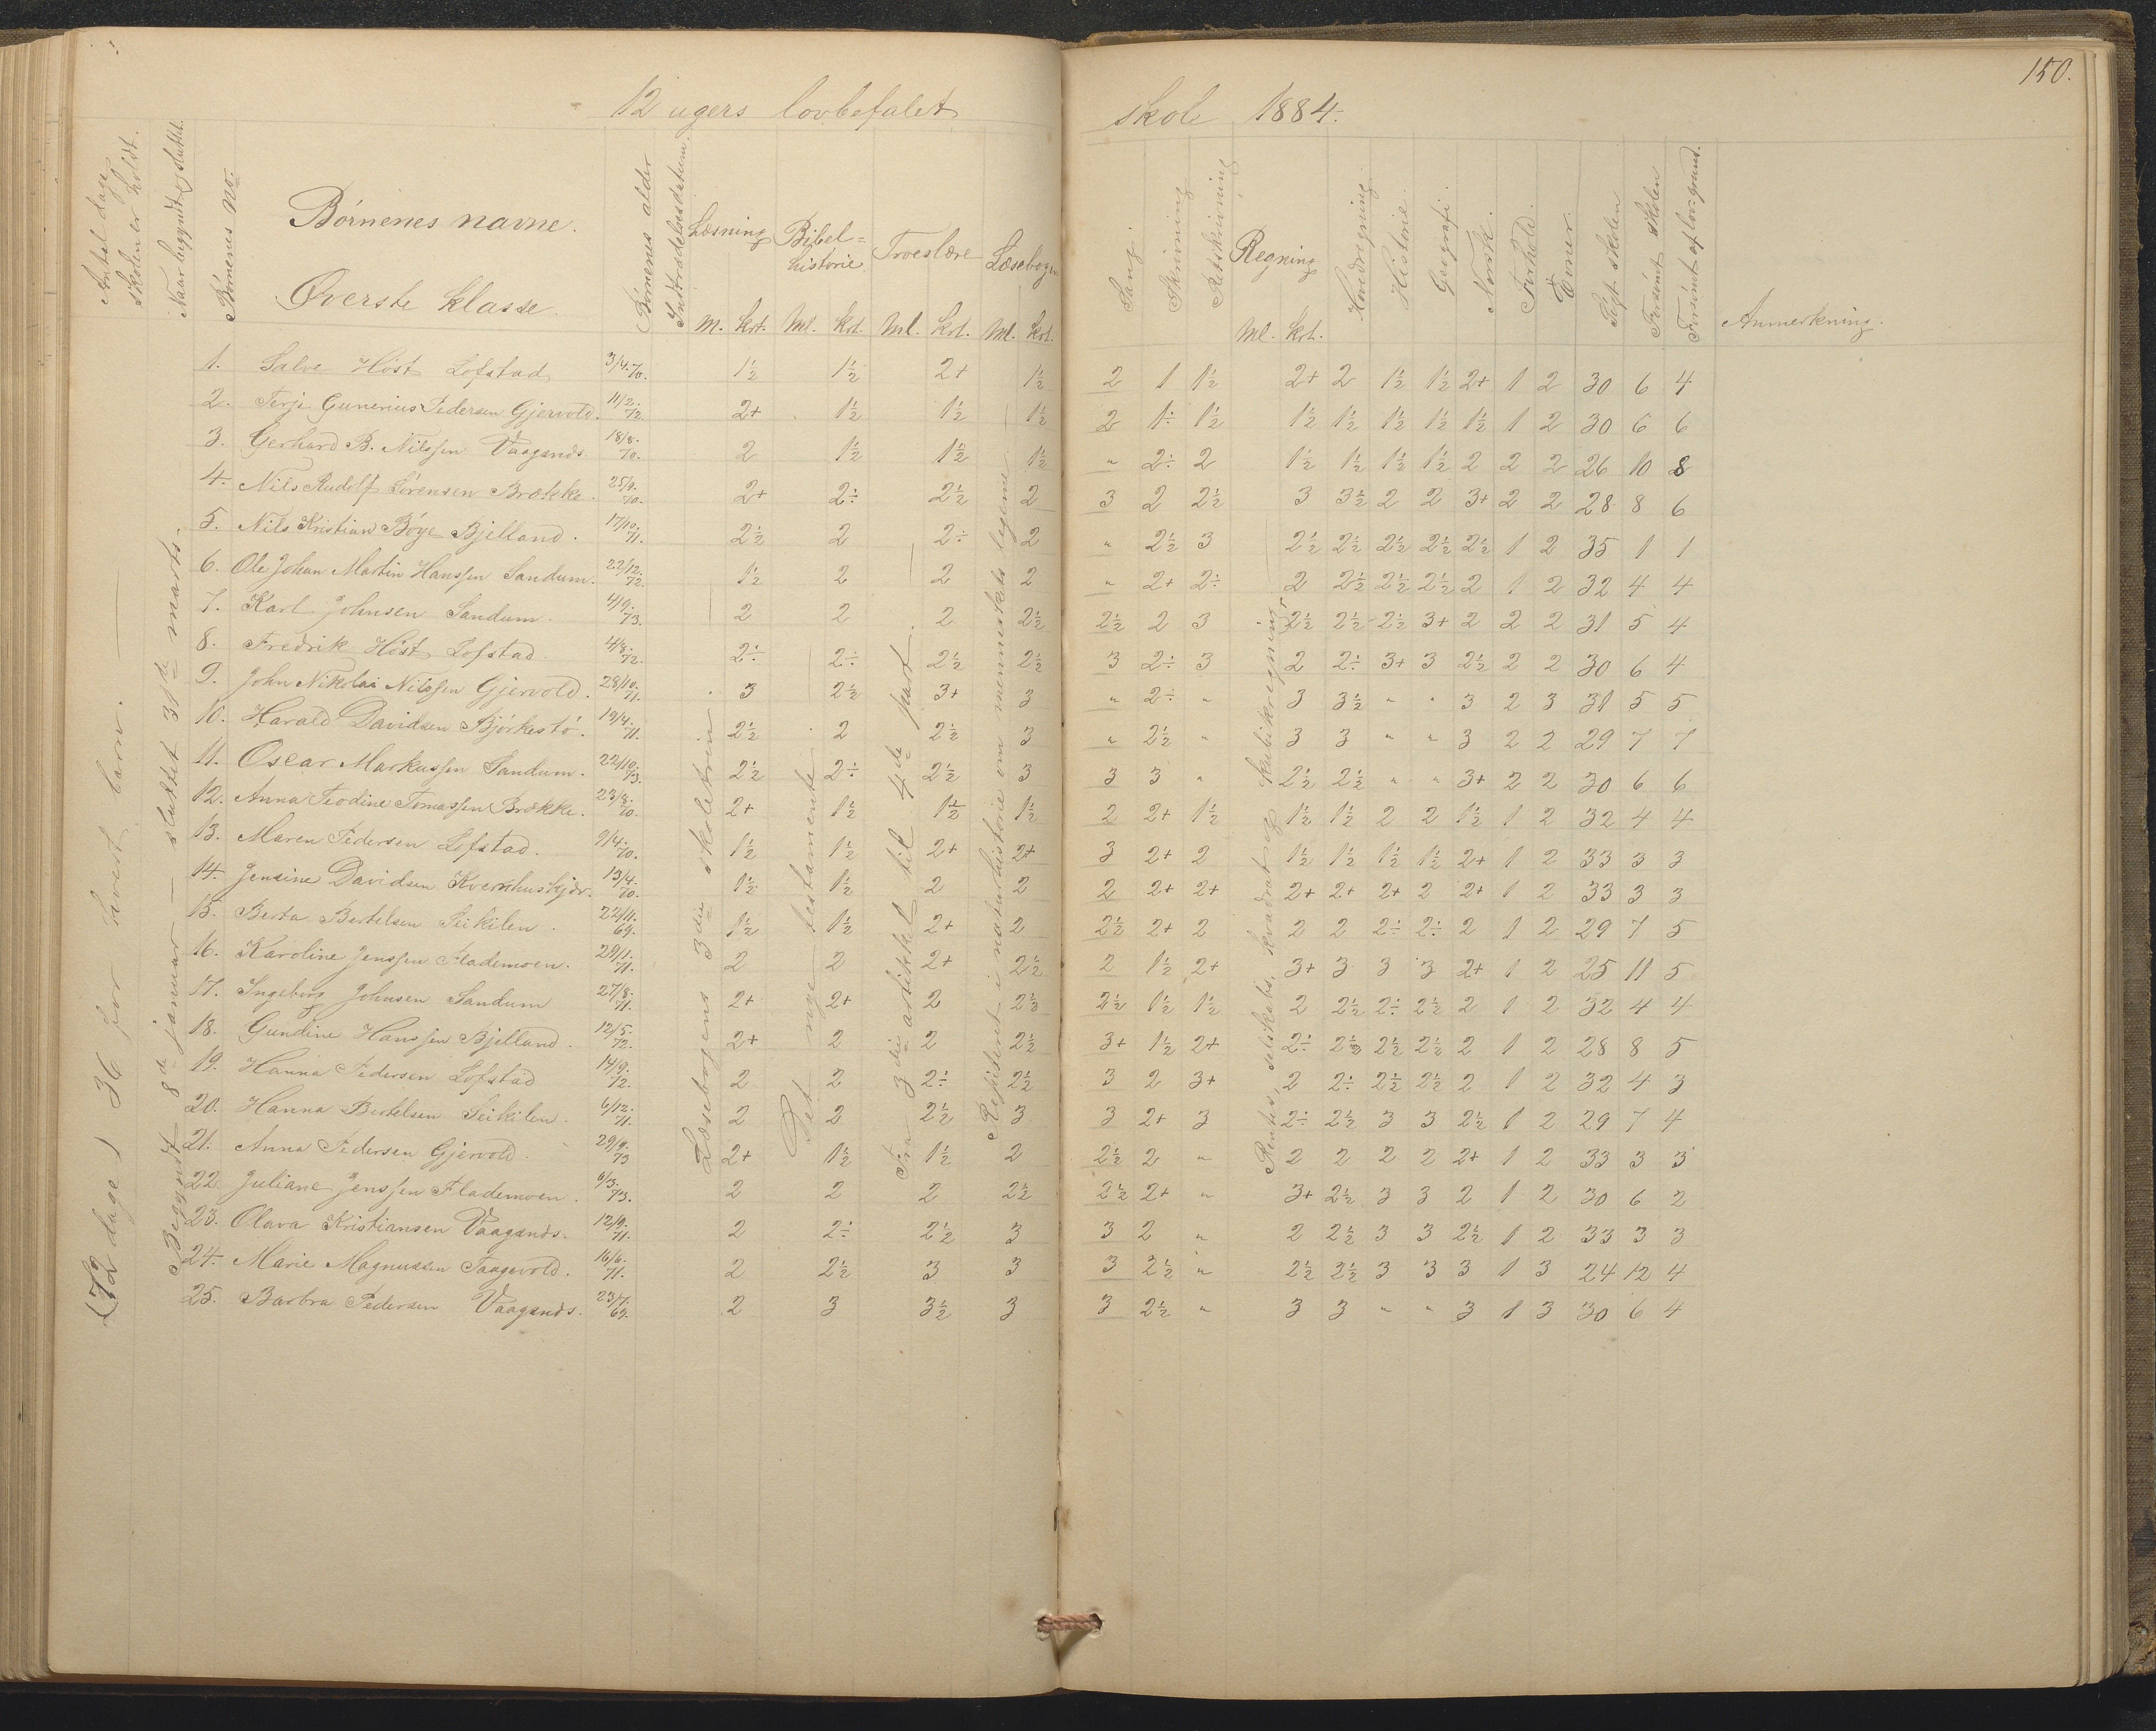 150.
12 ugers lovbefalet skole 1884.
Antal dage skolen er holdt.
Naar begyndt og sluttet.
Børnenes No.
Børnenes navne.
Øverste klasse.
Børnenes alder
Indtrædelsesdatum.
Læsning Bibel=historie Troeslære Læsebogen
M. Krt. Ml. Krt. Ml. Krt. Ml. Krt.
Sang. Skrivning Retskrivning Regning Hovedregning Historie. Geografi. Norsk. Forhold. Evner. Søgt skolen Forsømt skolen Forsømt af lov. grund. Anmerkning.
Ml. Krt.
72 dage) 36 for hvert barn.
Begyndt 8de januar — sluttet 31de marts.
Læsebogens 3die skoletrin
Det nye testamente
Fra 3die artikkel til 4de part.
Repeteret i naturhistorie om menneskets legeme
Rentes, selskabs, kvadrat og kubikregning
1. Salve Høst Lofstad 3/4.70. 1½ 1½ 2+ 1½ 2 1 1½ 2+ 2 1½ 1½ 2+ 1 2 30 6 4
2. Terje Gunerius Pedersen Gjervold. 11/2.72. 2+ 1½ 1½ 1½ 2 1÷ 1½ 1½ 1½ 1½ 1½ 1½ 1 2 30 6 6
3. Gerhard B. Nilssen Vaagsnds. 18/8.70. 2 1½ 1½ 1½ " 2÷ 2 1½ 1½ 1½ 1½ 2 2 2 26 10 8
4. Nils Rudolf Sørensen Brække. 25/9.70. 2+ 2÷ 2½ 2 3 2 2½ 3 3½ 2 2 3+ 2 2 28 8 6
5. Nils Kristian Bøye Bjelland. 17/10.71. 2½ 2 2÷ 2 " 2½ 3 2½ 2½ 2½ 2½ 2½ 1 2 35 1 1
6. Ole Johan Martin Hanssen Sandum. 22/12.72. 1½ 2 2 2 " 2+ 2÷ 2 2½ 2½ 2½ 2 1 2 32 4 4
7. Karl Johnsen Sandum. 4/9.73. 2 2 2 2½ 2½ 2 3 2½ 2½ 2½ 3+ 2 2 2 31 5 4
8. Fredrik Høst Lofstad. 4/8.72. 2÷ 2÷ 2½ 2½ 3 2÷ 3 2 2÷ 3+ 3 2½ 2 2 30 6 4
9. John Nikolai Nilssen Gjervold. 28/10.71. 3 2½ 3+ 3 " 2÷ " 3 3½ " " 3 2 3 31 5 5
10. Harald Davidsen Bjørkestø. 19/4.71. 2½ 2 2½ 3 " 2½ " 3 3 " " 3 2 2 29 7 7
11. Oscar Markussen Sandum. 22/10.73. 2½ 2÷ 2½ 3 3 3 " 2½ 2½ " " 3+ 2 2 30 6 6
12. Anna Teodine Tomassen Brække. 23/8.70. 2+ 1½ 1½ 1½ 2 2+ 1½ 1½ 1½ 2 2 1½ 1 2 32 4 4
13. Maren Pedersen Lofstad. 9/4.70. 1½ 1½ 2+ 2+ 3 2+ 2 1½ 1½ 1½ 1½ 2+ 1 2 33 3 3
14. Jensine Davidsen Kvernhuskjær. 13/4.70. 1½ 1½ 2 2 2 2+ 2+ 2+ 2+ 2+ 2 2+ 1 2 33 3 3
15. Berta Bertelsen Seikilen. 22/11.69. 1½ 1½ 2+ 2 2½ 2+ 2 2 2 2÷ 2÷ 2 1 2 29 7 5
16. Karoline Jenssen Flademoen. 29/1.71. 2 2 2+ 2½ 2 1½ 2+ 3+ 3 3 3 2+ 1 2 25 11 5
17. Ingeborg Johnsen Sandum 27/8.71. 2+ 2+ 2 2½ 2½ 1½ 1½ 2 2½ 2÷ 2½ 2 1 2 32 4 4
18. Gundine Hanssen Bjelland. 12/5.72. 2+ 2 2 2½ 3+ 1½ 2+ 2÷ 2½ 2½ 2½ 2 1 2 28 8 5
19. Hanna Pedersen Lofstad 14/9.72. 2 2 2÷ 2½ 3 2 3+ 2 2÷ 2½ 2½ 2 1 2 32 4 3
20. Hanna Bertelsen Seikilen. 6/12.71. 2 2 2½ 3 3 2+ 3 2÷ 2½ 3 3 2½ 1 2 29 7 4
21. Anna Pedersen Gjervold. 29/9.73 2+ 1½ 1½ 2 2½ 2 " 2 2 2 2 2+ 1 2 33 3 3
22. Juliane Jenssen Flademoen. 6/3.73. 2 2 2 2½ 2½ 2+ " 3+ 2½ 3 3 2 1 2 30 6 2
23. Olava Kristiansen Vaagsnds. 12/9.71. 2 2÷ 2½ 3 3 2 " 2 2½ 3 3 2½ 1 2 33 3 3
24. Marie Magnussen Taagvold. 16/6.71. 2 2½ 3 3 3 2½ " 2½ 2½ 3 3 3 1 3 24 12 4
25. Barbra Pedersen Vaagsnds. 23/7.69. 2 3 3½ 3 3 2½ " 3 3 " " 3 1 3 30 6 4